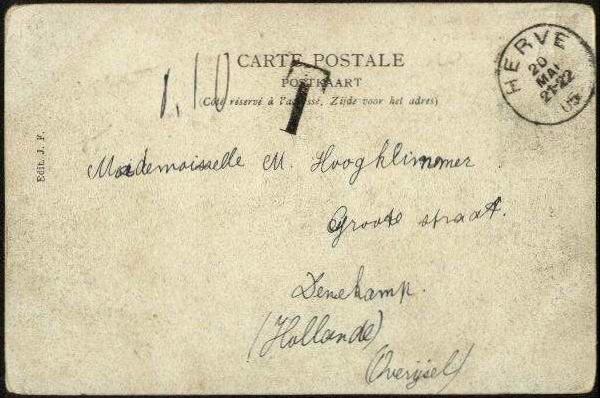 CARTE POSTALE
POSTKAART
(Côté réservé à l'adresse, Zijde voor het adres)
1,10
T
HERVE
20
MAI
21-22
05
Edit. J. F.
Mademoiselle M. Hoogklimmer
Groote straat.
Denekamp.
(Hollande)
(Overijsel)